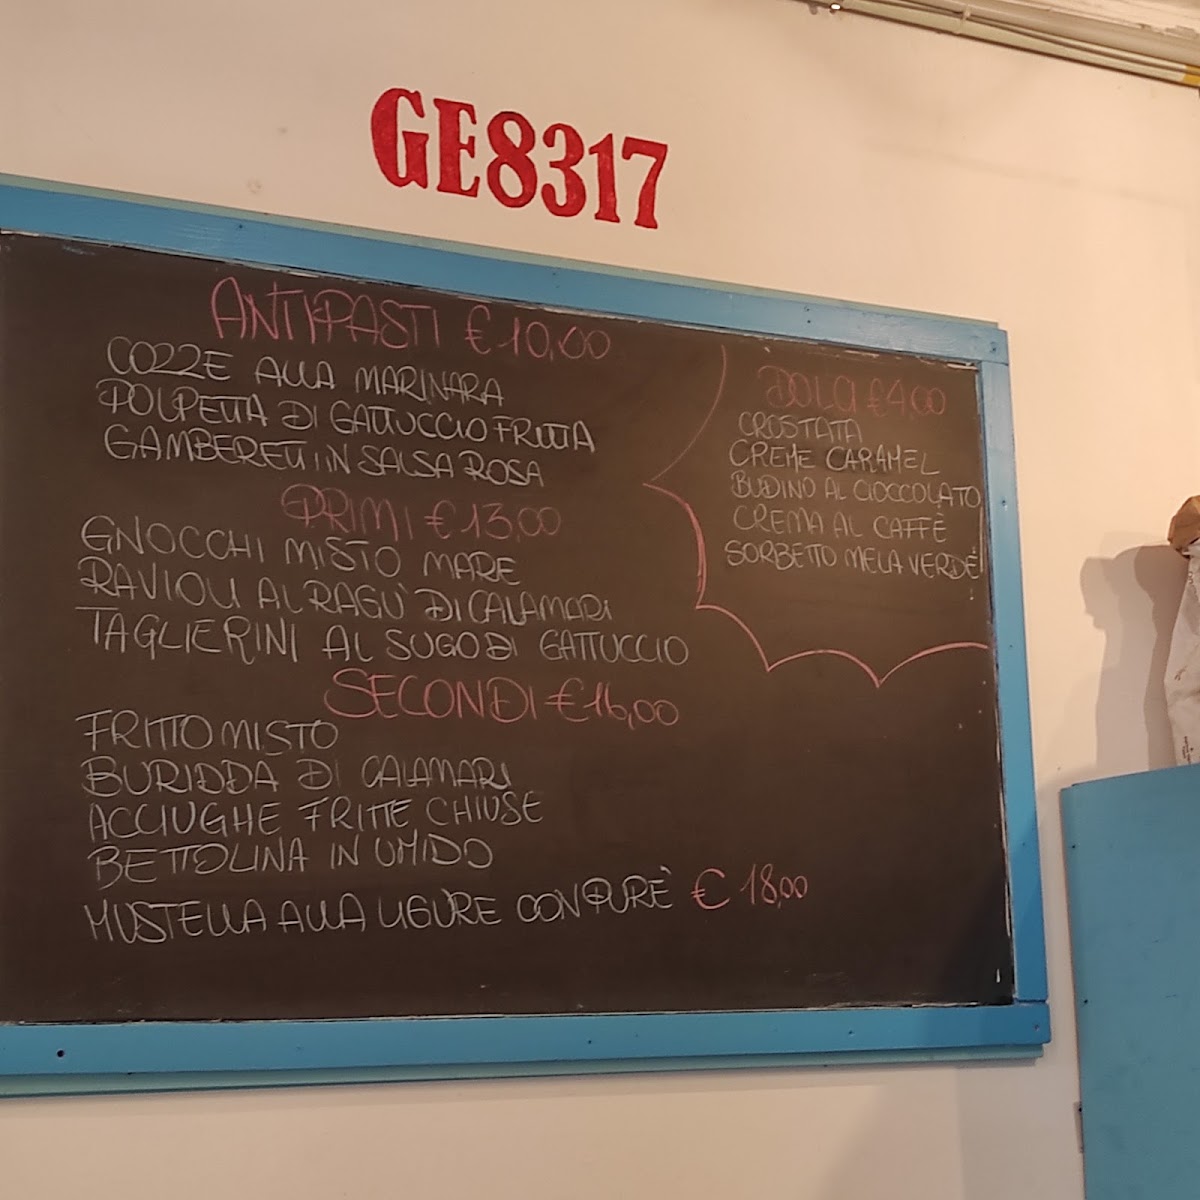 GE8317
ANTIPASTI €10,00
COZZE ALLA MARINARA
POLPETTA DI GATTUCCIO FRITTA
GAMBERETTI IN SALSA ROSA
PRIMI €13,00
GNOCCHI MISTO MARE
RAVIOLI AL RAGÙ DI CALAMARI
TAGLIERINI AL SUGO DI GATTUCCIO
SECONDI €16,00
FRITTO MISTO
BURIDDA DI CALAMARI
ACCIUGHE FRITTE CHIUSE
BETTOLINA IN UMIDO
MUSTELLA ALLA LIGURE CON PURÈ € 18,00
DOLCI €4,00
CROSTATA
CREME CARAMEL
BUDINO AL CIOCCOLATO
CREMA AL CAFFÈ
SORBETTO MELA VERDE